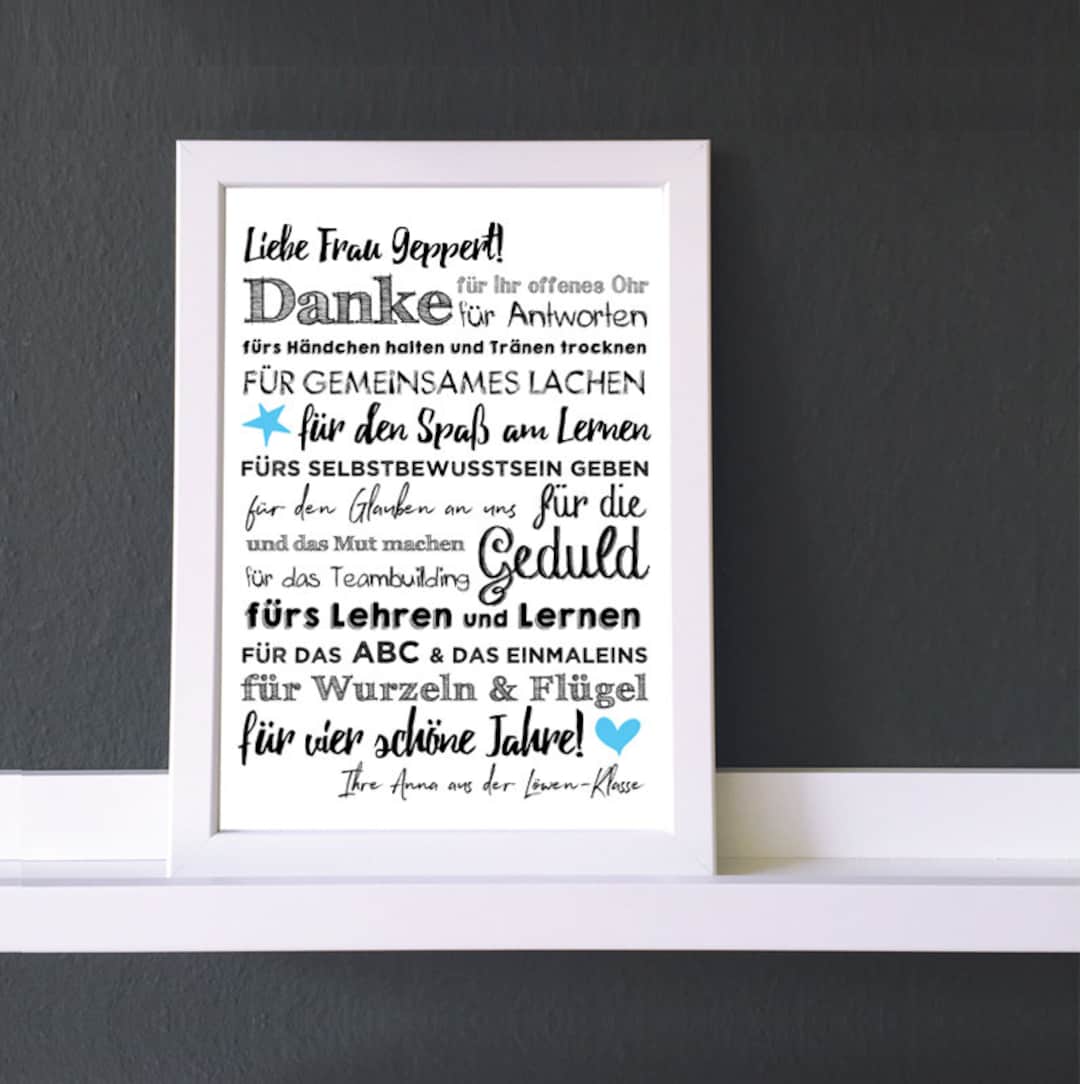 Liebe Frau Geppert!
Danke
für Ihr offenes Ohr
für Antworten
fürs Händchen halten und Tränen trocknen
FÜR GEMEINSAMES LACHEN
für den Spaß am Lernen
FÜRS SELBSTBEWUSSTSEIN GEBEN
für den Glauben an uns
und das Mut machen
für die
Geduld
für das Teambuilding
fürs Lehren und Lernen
FÜR DAS ABC & DAS EINMALEINS
für Wurzeln & Flügel
für vier schöne Jahre!
Ihre Anna aus der Löwen-Klasse